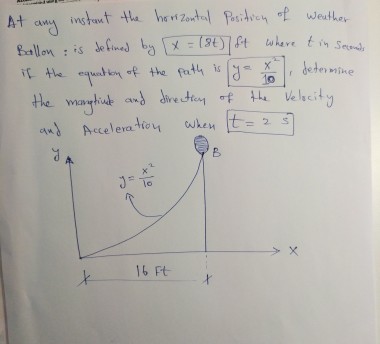 At any instant the horizontal Position of Weather
Ballon : is defined by x = (8t) ft where t in seconds
if the equation of the path is y = x²/10 , determine
the mangtiut and direction of the Velocity
and Acceleration when t = 2 s
y
B
y = x²/10
x
16 Ft